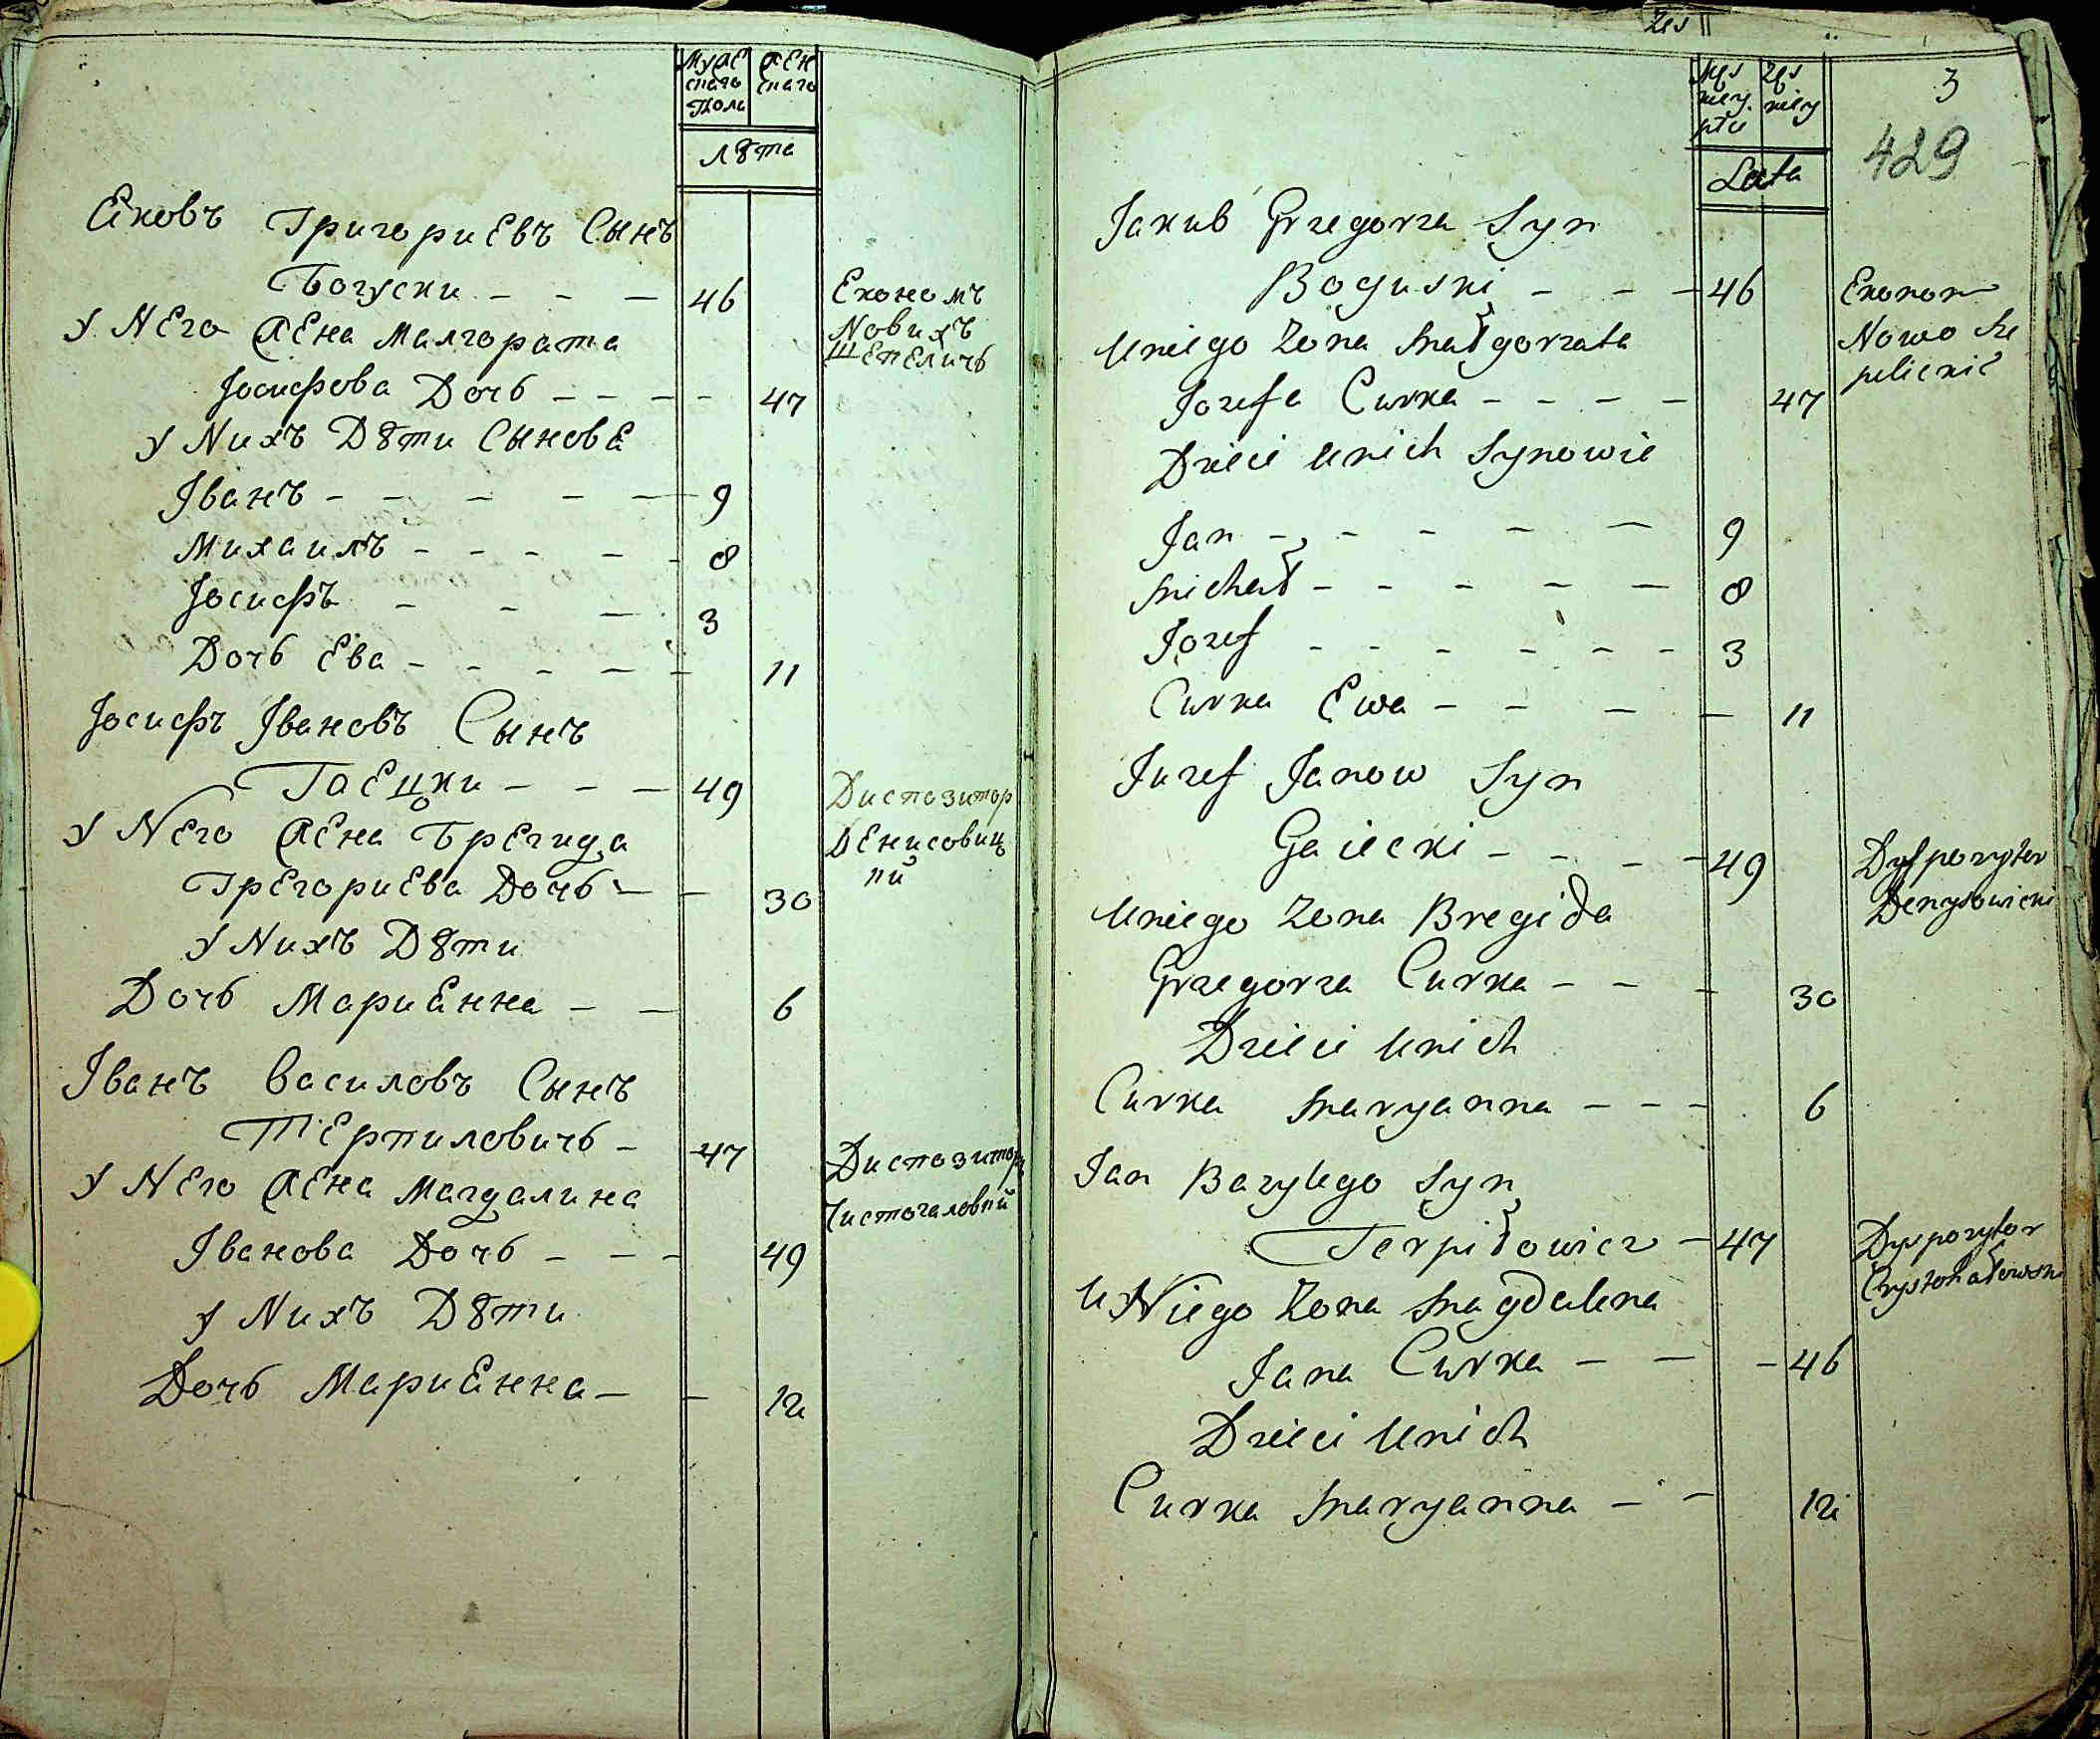 Муже
скаго
Пола
Жен
скаго
Лѣта
Яковъ Григориевъ Сынъ
Богуски - - - 46
Економъ
Новихъ
Шепеличь
У Него Жена Малгората
Іосифова Дочь - - - - 47
У Нихъ Дѣти Сынове
Іванъ - - - - - 9
Михаилъ - - - - - 8
Іосифъ - - - 3
Дочь Ева - - - - - 11
Іосифъ Івановъ Сынъ
Гаецки - - - 49
Диспозитор
Денисовиц
кий
У Него Жена Брегида
Грегориева Дочь - - 30
У Нихъ Дѣти
Дочь Марианна - - 6
Іванъ Василовъ Сынъ
Терпиловичь - 47
Диспозитор
Чистогаловкий
У Него Жена Магдалина
Іванова Дочь - - - 49
У Нихъ Дѣти
Дочь Марианна - - 12
Męs
kiey
płci
Żęs
kiey
Lata
3
429
Jakub Grzegorza Syn
Boguski - - - 46
Ekonom
Nowo Sze
pelickie
Uniego Zona Małgorzata
Jozefa Curka - - - - 47
Dzieci Unich Synowie
Jan - - - - - 9
Michał - - - - - 8
Jozef - - - - - - 3
Curka Ewa - - - - 11
Juzef Janow Syn
Gaiecki - - - - 49
Dyspozytor
Denysowicki
Uniego Zona Bregida
Grzegorza Curka - - - 30
Dzieci Unich
Curka Maryanna - - - 6
Jan Bazylego Syn
Terpiłowicz - 47
Dyspozytor
Czystohałowski
U Niego Zona Magdalena
Jana Curka - - - 46
Dzieci Unich
Curka Maryanna - - 12